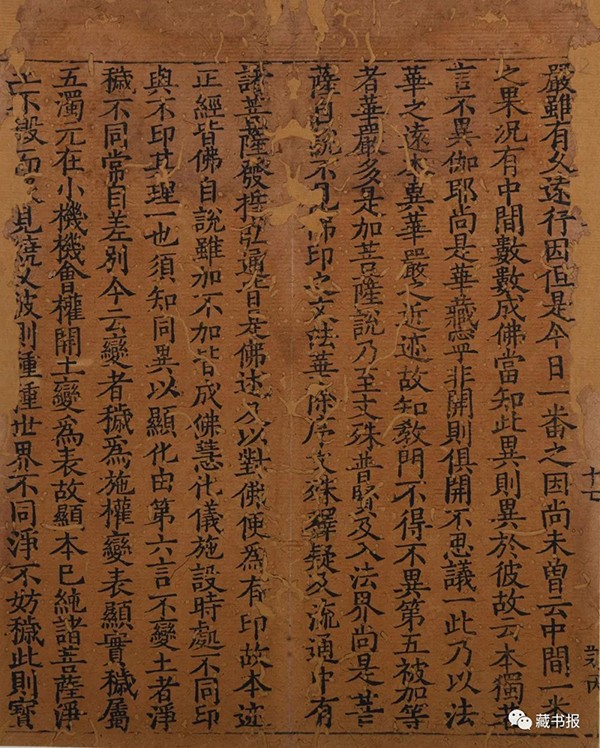 嚴雖有久遠行因但是今日一番之因尚未曾云中間一
之果況有中間數數成佛當知此異則異於彼故云本獨
言不異伽耶尚是華藏寧非開則俱開不思議一此乃以法
華之遠本異華嚴之近迹故知教門不得不異第五被加等
者華嚴多是加菩薩說乃至文殊普賢及入法界尚是菩
薩自說不見佛印之文法華除序文殊釋疑及流通中有
諸菩薩發誓弘通皆是佛述及以對佛使為有印故本迹
正經皆佛自說雖加不加皆成佛慧化儀施設時處不同印
與不印其理一也須知同異以顯化由第六言不變土者淨
穢不同常自差別今云變者穢為施權變表顯實穢屬
五濁元在小機機會權開土變為表故顯本已純諸菩薩淨
土不毀而眾見燒又彼則種種世界不同淨不妨穢此則寶
十七
藏书报